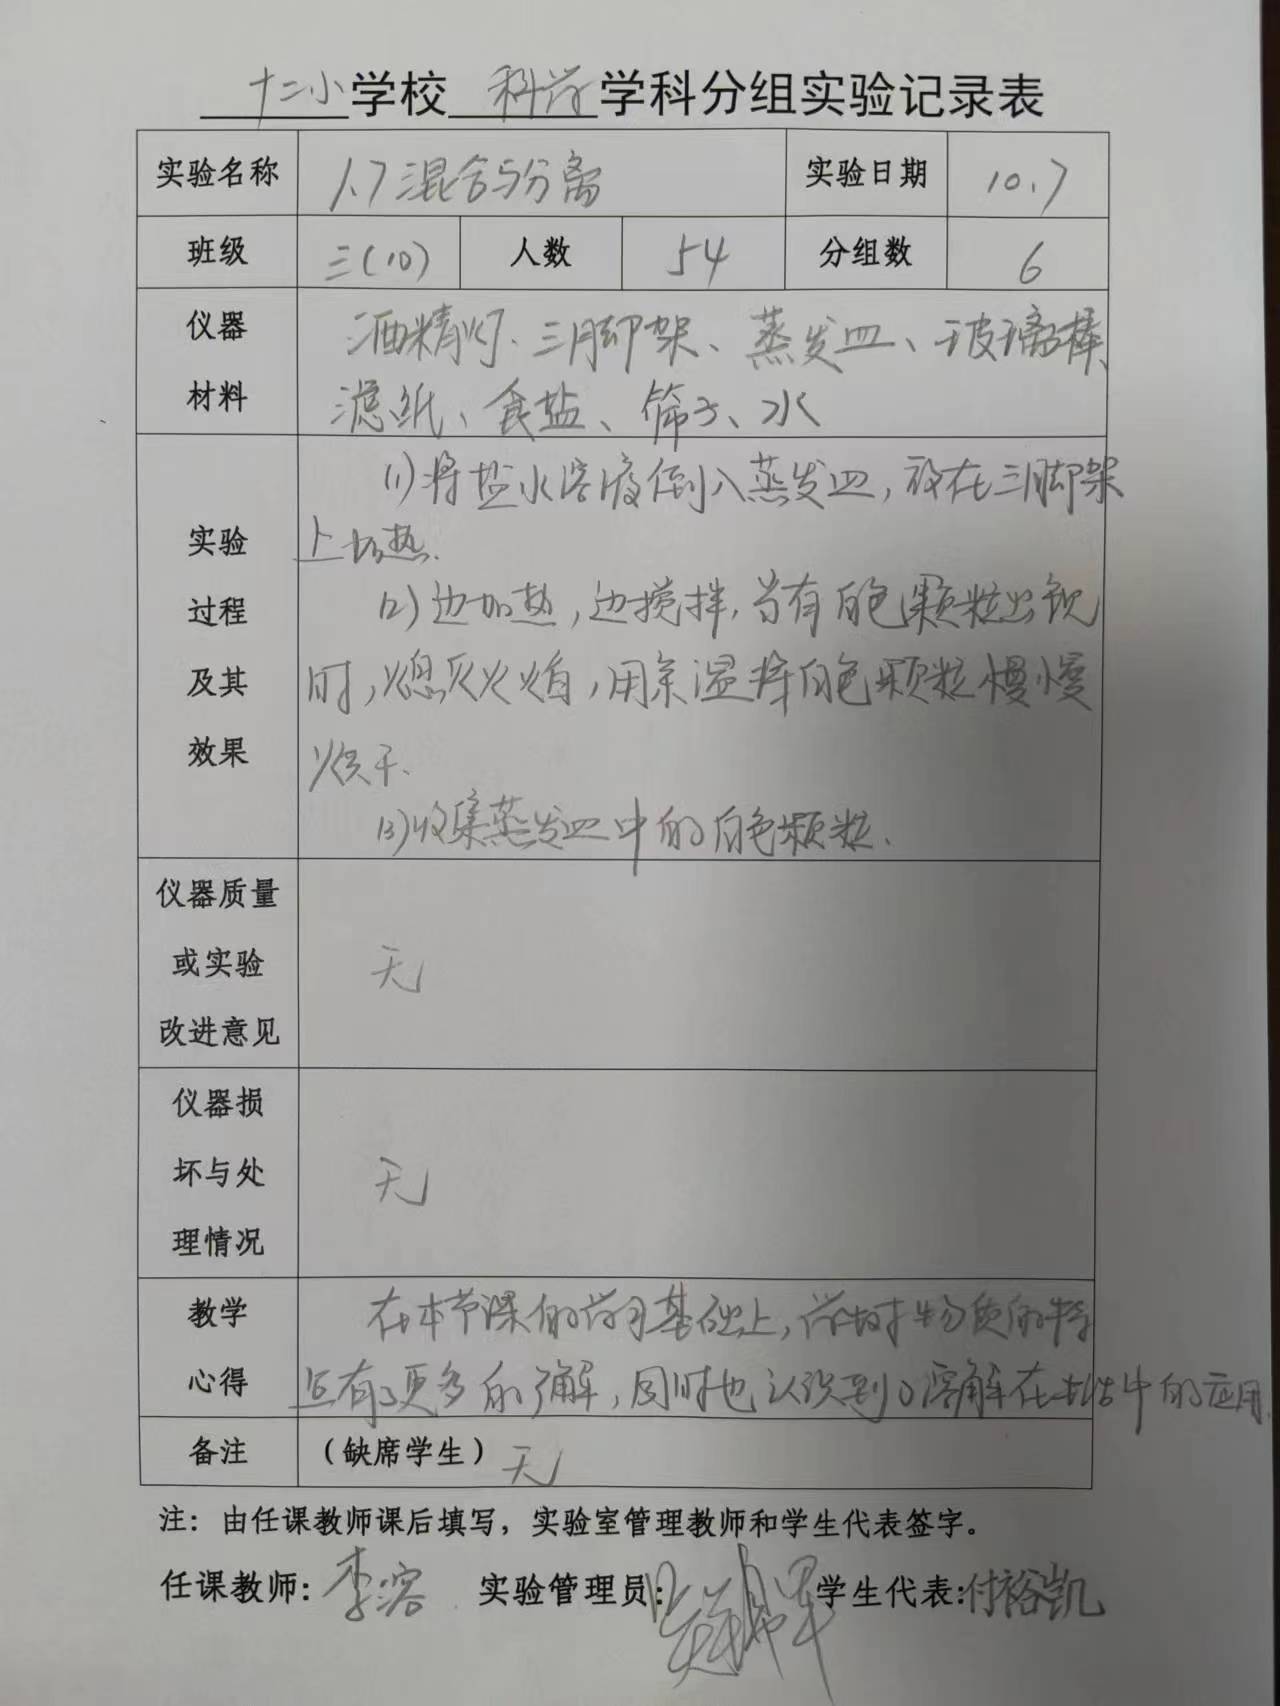 十二小学校 科学 学科分组实验记录表
实验名称 1.7混合与分离 实验日期 10.7
班级 三(10) 人数 54 分组数 6
仪器 酒精灯、三脚架、蒸发皿、玻璃棒
材料 滤纸、食盐、筛子、水
(1)将盐水溶液倒入蒸发皿,放在三脚架
实验 上加热.
过程 (2)边加热,边搅拌,当有白色颗粒出现
及其 时,熄灭火焰,用余温将白色颗粒慢慢
效果 烘干.
(3)收集蒸发皿中的白色颗粒.
仪器质量
或实验 无
改进意见
仪器损
坏与处 无
理情况
教学 在本节课的学习基础上,学生对物质的特
心得 点有了更多的了解,同时也认识到了溶解在生活中的应用.
备注 (缺席学生) 无
注:由任课教师课后填写,实验室管理教师和学生代表签字。
任课教师:李容 实验管理员: 学生代表:付裕凯